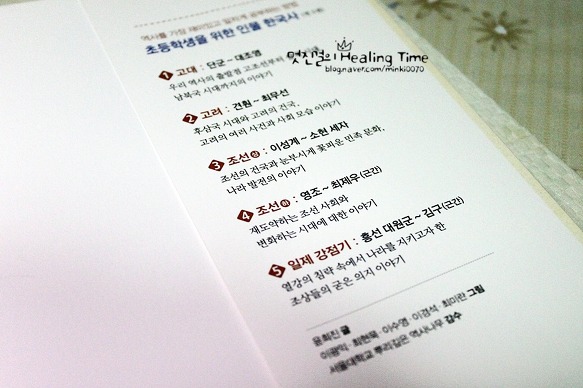 역사를 가장 재미있고 알차게 공부하는 방법
초등학생을 위한 인물 한국사
멋진걸의 Healing Time
blog.naver.com/minki0070
1 고대 : 단군 ~ 대조영
우리 역사의 출발점 고조선부터
남북국 시대까지의 이야기
2 고려 : 견훤 ~ 최무선
후삼국 시대와 고려의 건국,
고려의 여러 사건과 사회 모습 이야기
3 조선(상) : 이성계 ~ 소현 세자
조선의 건국과 눈부시게 꽃피운 민족 문화,
나라 발전의 이야기
4 조선(하) : 영조 ~ 최제우(근간)
재도약하는 조선 사회와
변화하는 시대에 대한 이야기
5 일제 강점기 : 흥선 대원군 ~ 김구(근간)
열강의 침략 속에서 나라를 지키고자 한
조상들의 굳은 의지 이야기
윤희진 글
이광익·최현묵·이수영·이경석·최미란 그림
서울대학교 뿌리깊은 역사나무 감수